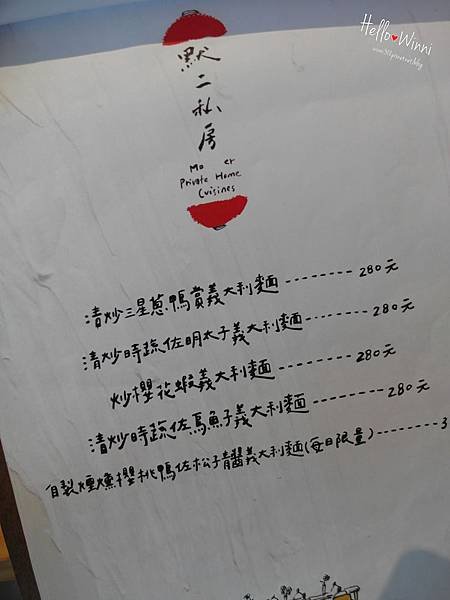 Hello♥Winni
默二私房
Mo er
Private Home
Cuisines
清炒三星蔥鴨賞義大利麵 -------- 280元
清炒時蔬佐明太子義大利麵-------- 280元
炒櫻花蝦義大利麵 -------- 280元
清炒時蔬佐烏魚子義大利麵 -------- 280元
自製煙燻櫻桃鴨佐松子青醬義大利麵(每日限量) -------- 3